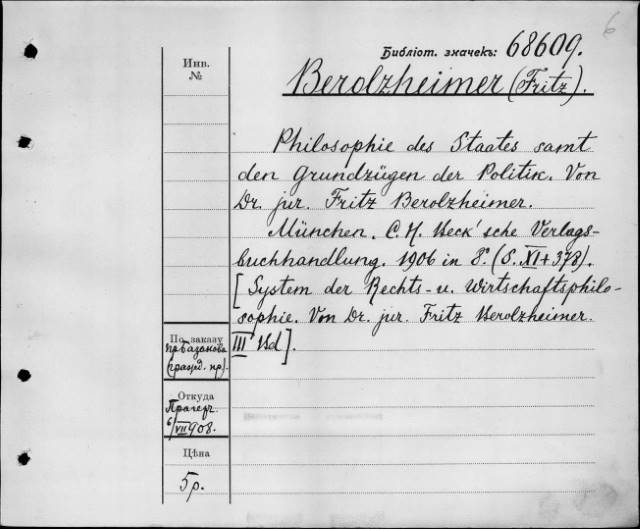 6
Библіот. значекъ: 68609.
Инв.
№
Berolzheimer (Fritz).
Philosophie des Staates samt
den Grundzügen der Politik. Von
Dr. jur. Fritz Berolzheimer.
München. C. H. Beck'sche Verlags-
buchhandlung. 1906 in 8°. (S. XI + 378).
[System der Rechts- u. Wirtschaftsphilo-
sophie. Von Dr. jur. Fritz Berolzheimer.
III Bd].
По заказу
пр Базанова
(гражд. пр).
Откуда
Прагеръ
6/VII 908.
Цѣна
5 р.